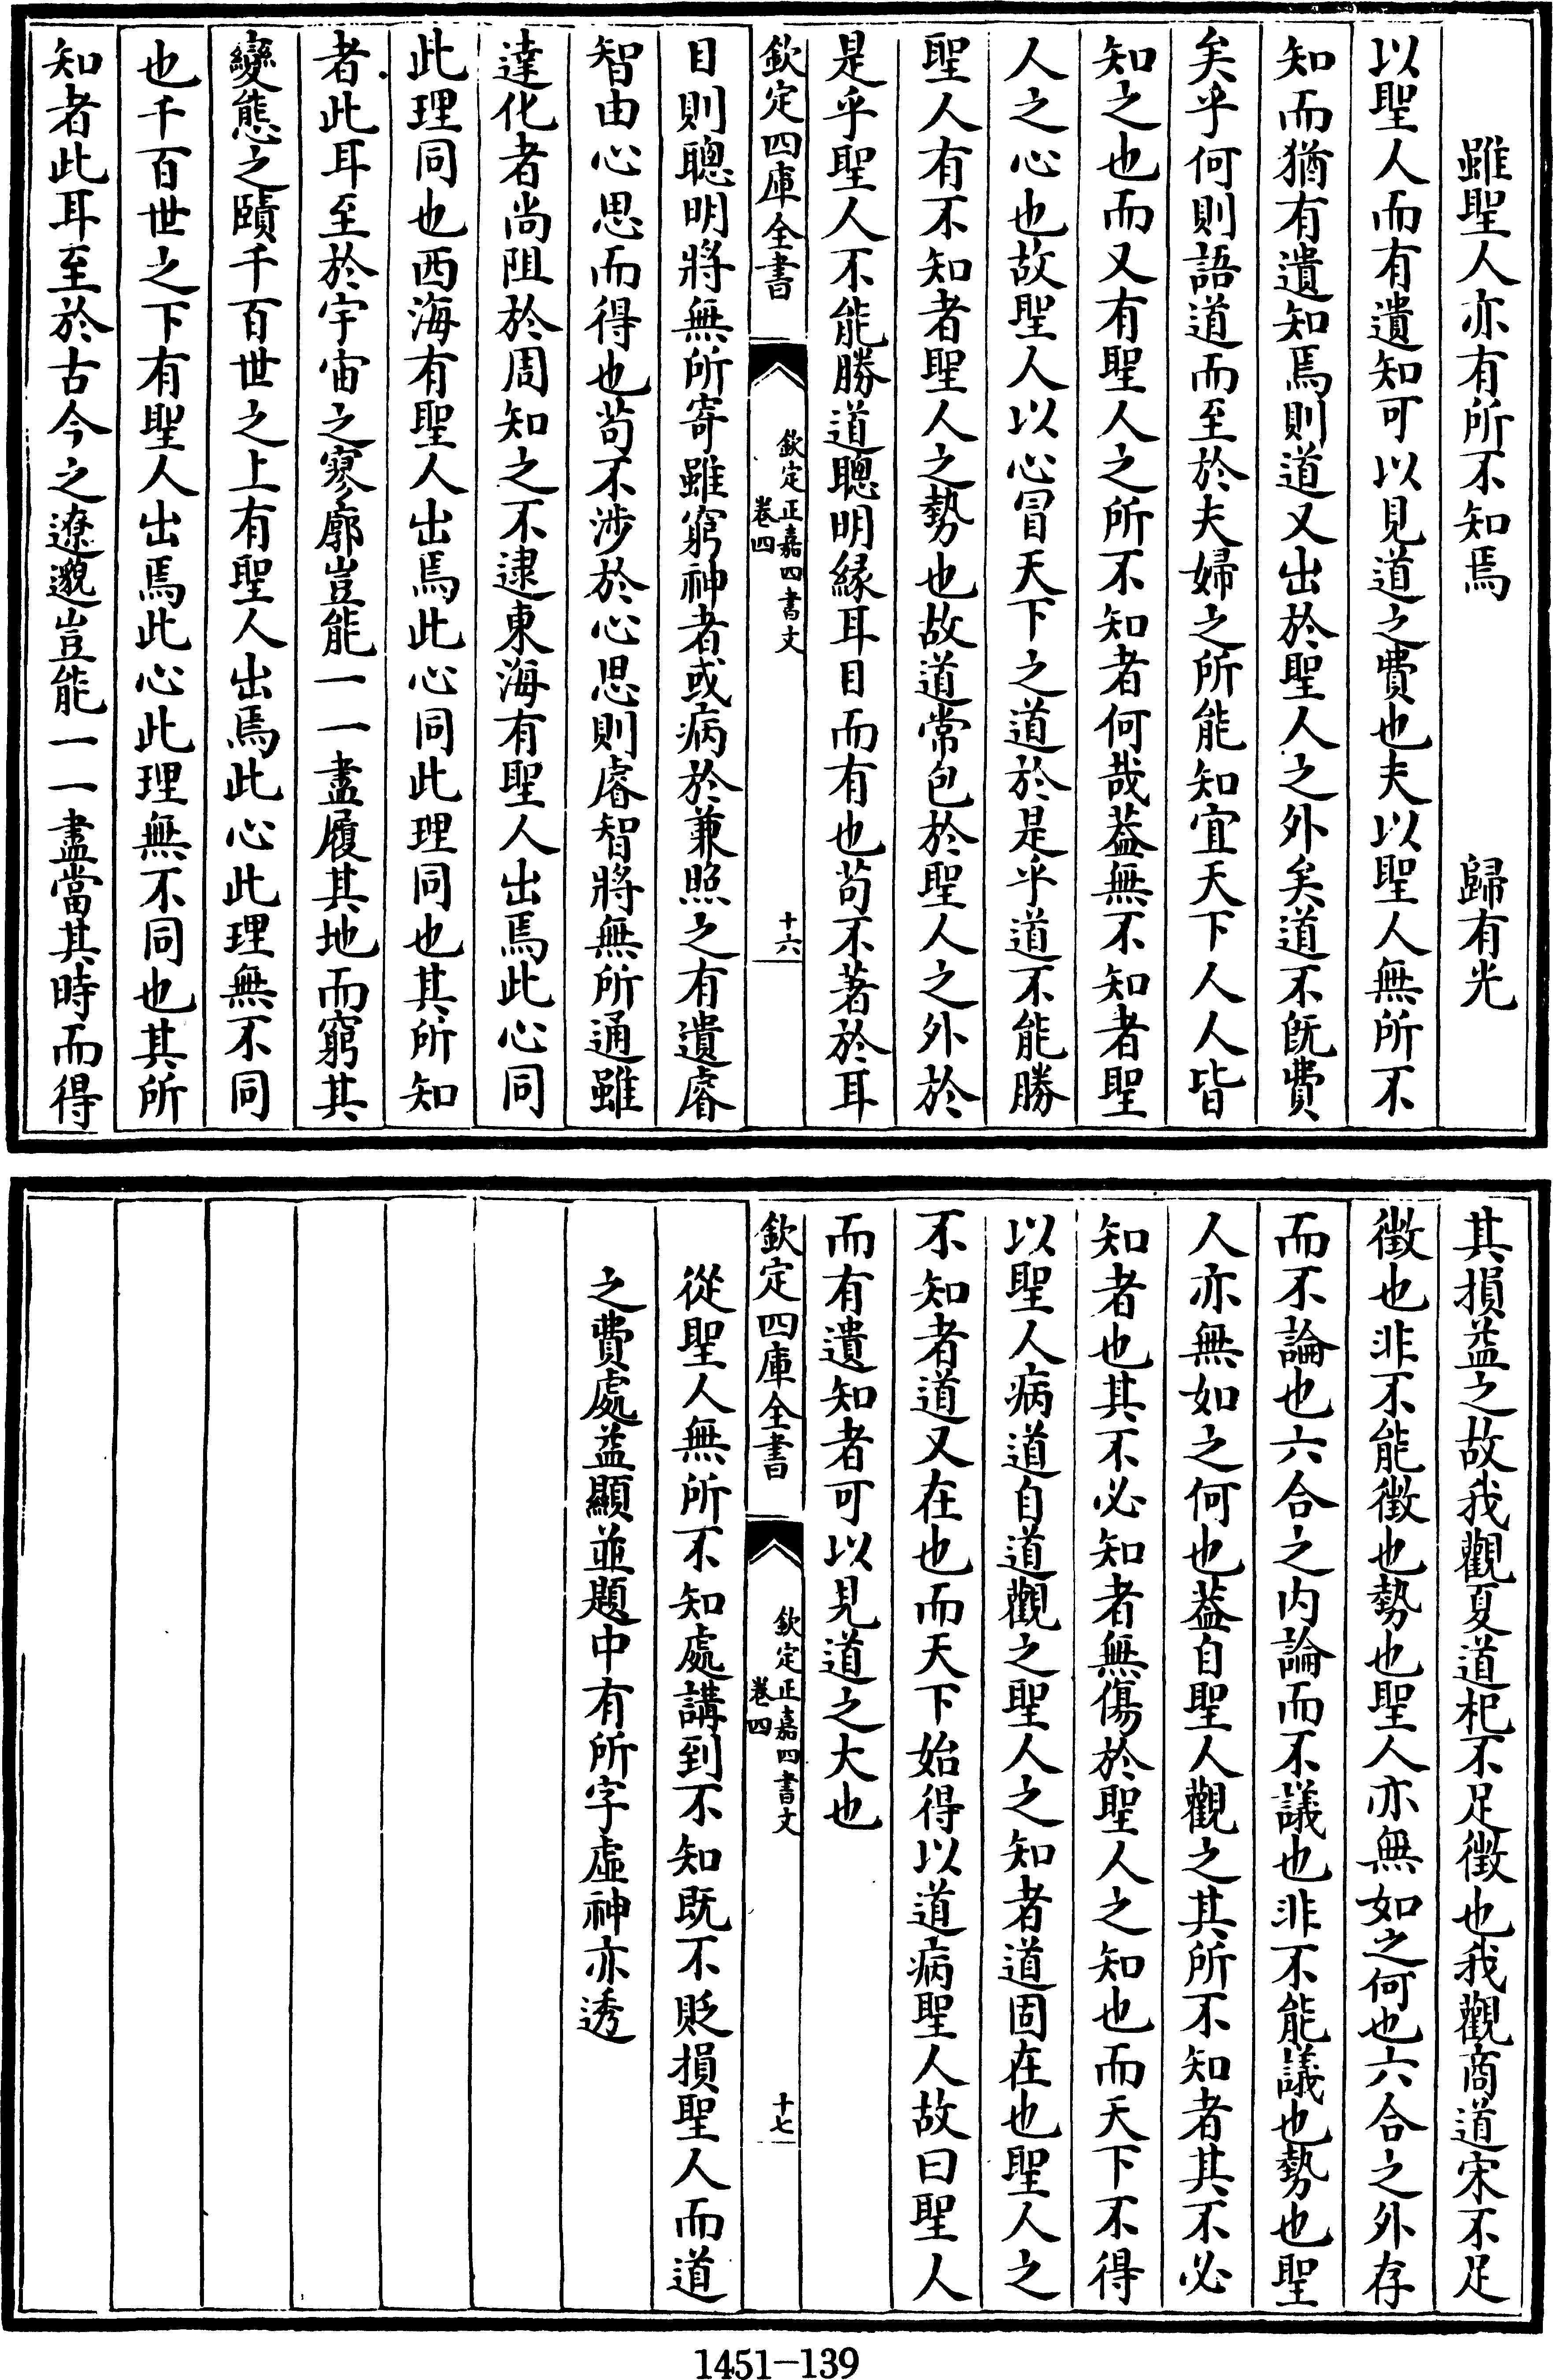 雖聖人亦有所不知焉　歸有光
以聖人而有遺知可以見道之費也夫以聖人無所不
知而猶有遺知焉則道又出於聖人之外矣道不旣費
矣乎何則語道而至於夫婦之所能知宜天下人人皆
知之也而又有聖人之所不知者何哉葢無不知者聖
人之心也故聖人以心冒天下之道於是乎道不能勝
聖人有不知者聖人之勢也故道常包於聖人之外於
是乎聖人不能勝道聰明緣耳目而有也茍不著於耳
欽定四庫全書
欽定正嘉四書文
卷四
十六
目則聰明將無所寄雖窮神者或病於兼照之有遺睿
智由心思而得也茍不涉於心思則睿智將無所通雖
達化者尚阻於周知之不逮東海有聖人出焉此心同
此理同也西海有聖人出焉此心同此理同也其所知
者此耳至於宇宙之寥廓豈能一一盡履其地而窮其
變態之賾千百世之上有聖人出焉此心此理無不同
也千百世之下有聖人出焉此心此理無不同也其所
知者此耳至於古今之遼邈豈能一一盡當其時而得
其損益之故我觀夏道杞不足徵也我觀商道宋不足
徵也非不能徵也勢也聖人亦無如之何也六合之外存
而不論也六合之内論而不議也非不能議也勢也聖
人亦無如之何也葢自聖人觀之其所不知者其不必
知者也其不必知者無傷於聖人之知也而天下不得
以聖人病道自道觀之聖人之知者道固在也聖人之
不知者道又在也而天下始得以道病聖人故曰聖人
而有遺知者可以見道之大也
欽定四庫全書
欽定正嘉四書文
卷四
十七
從聖人無所不知處講到不知既不貶損聖人而道
之費處益顯並題中有所字虛神亦透
1451-139